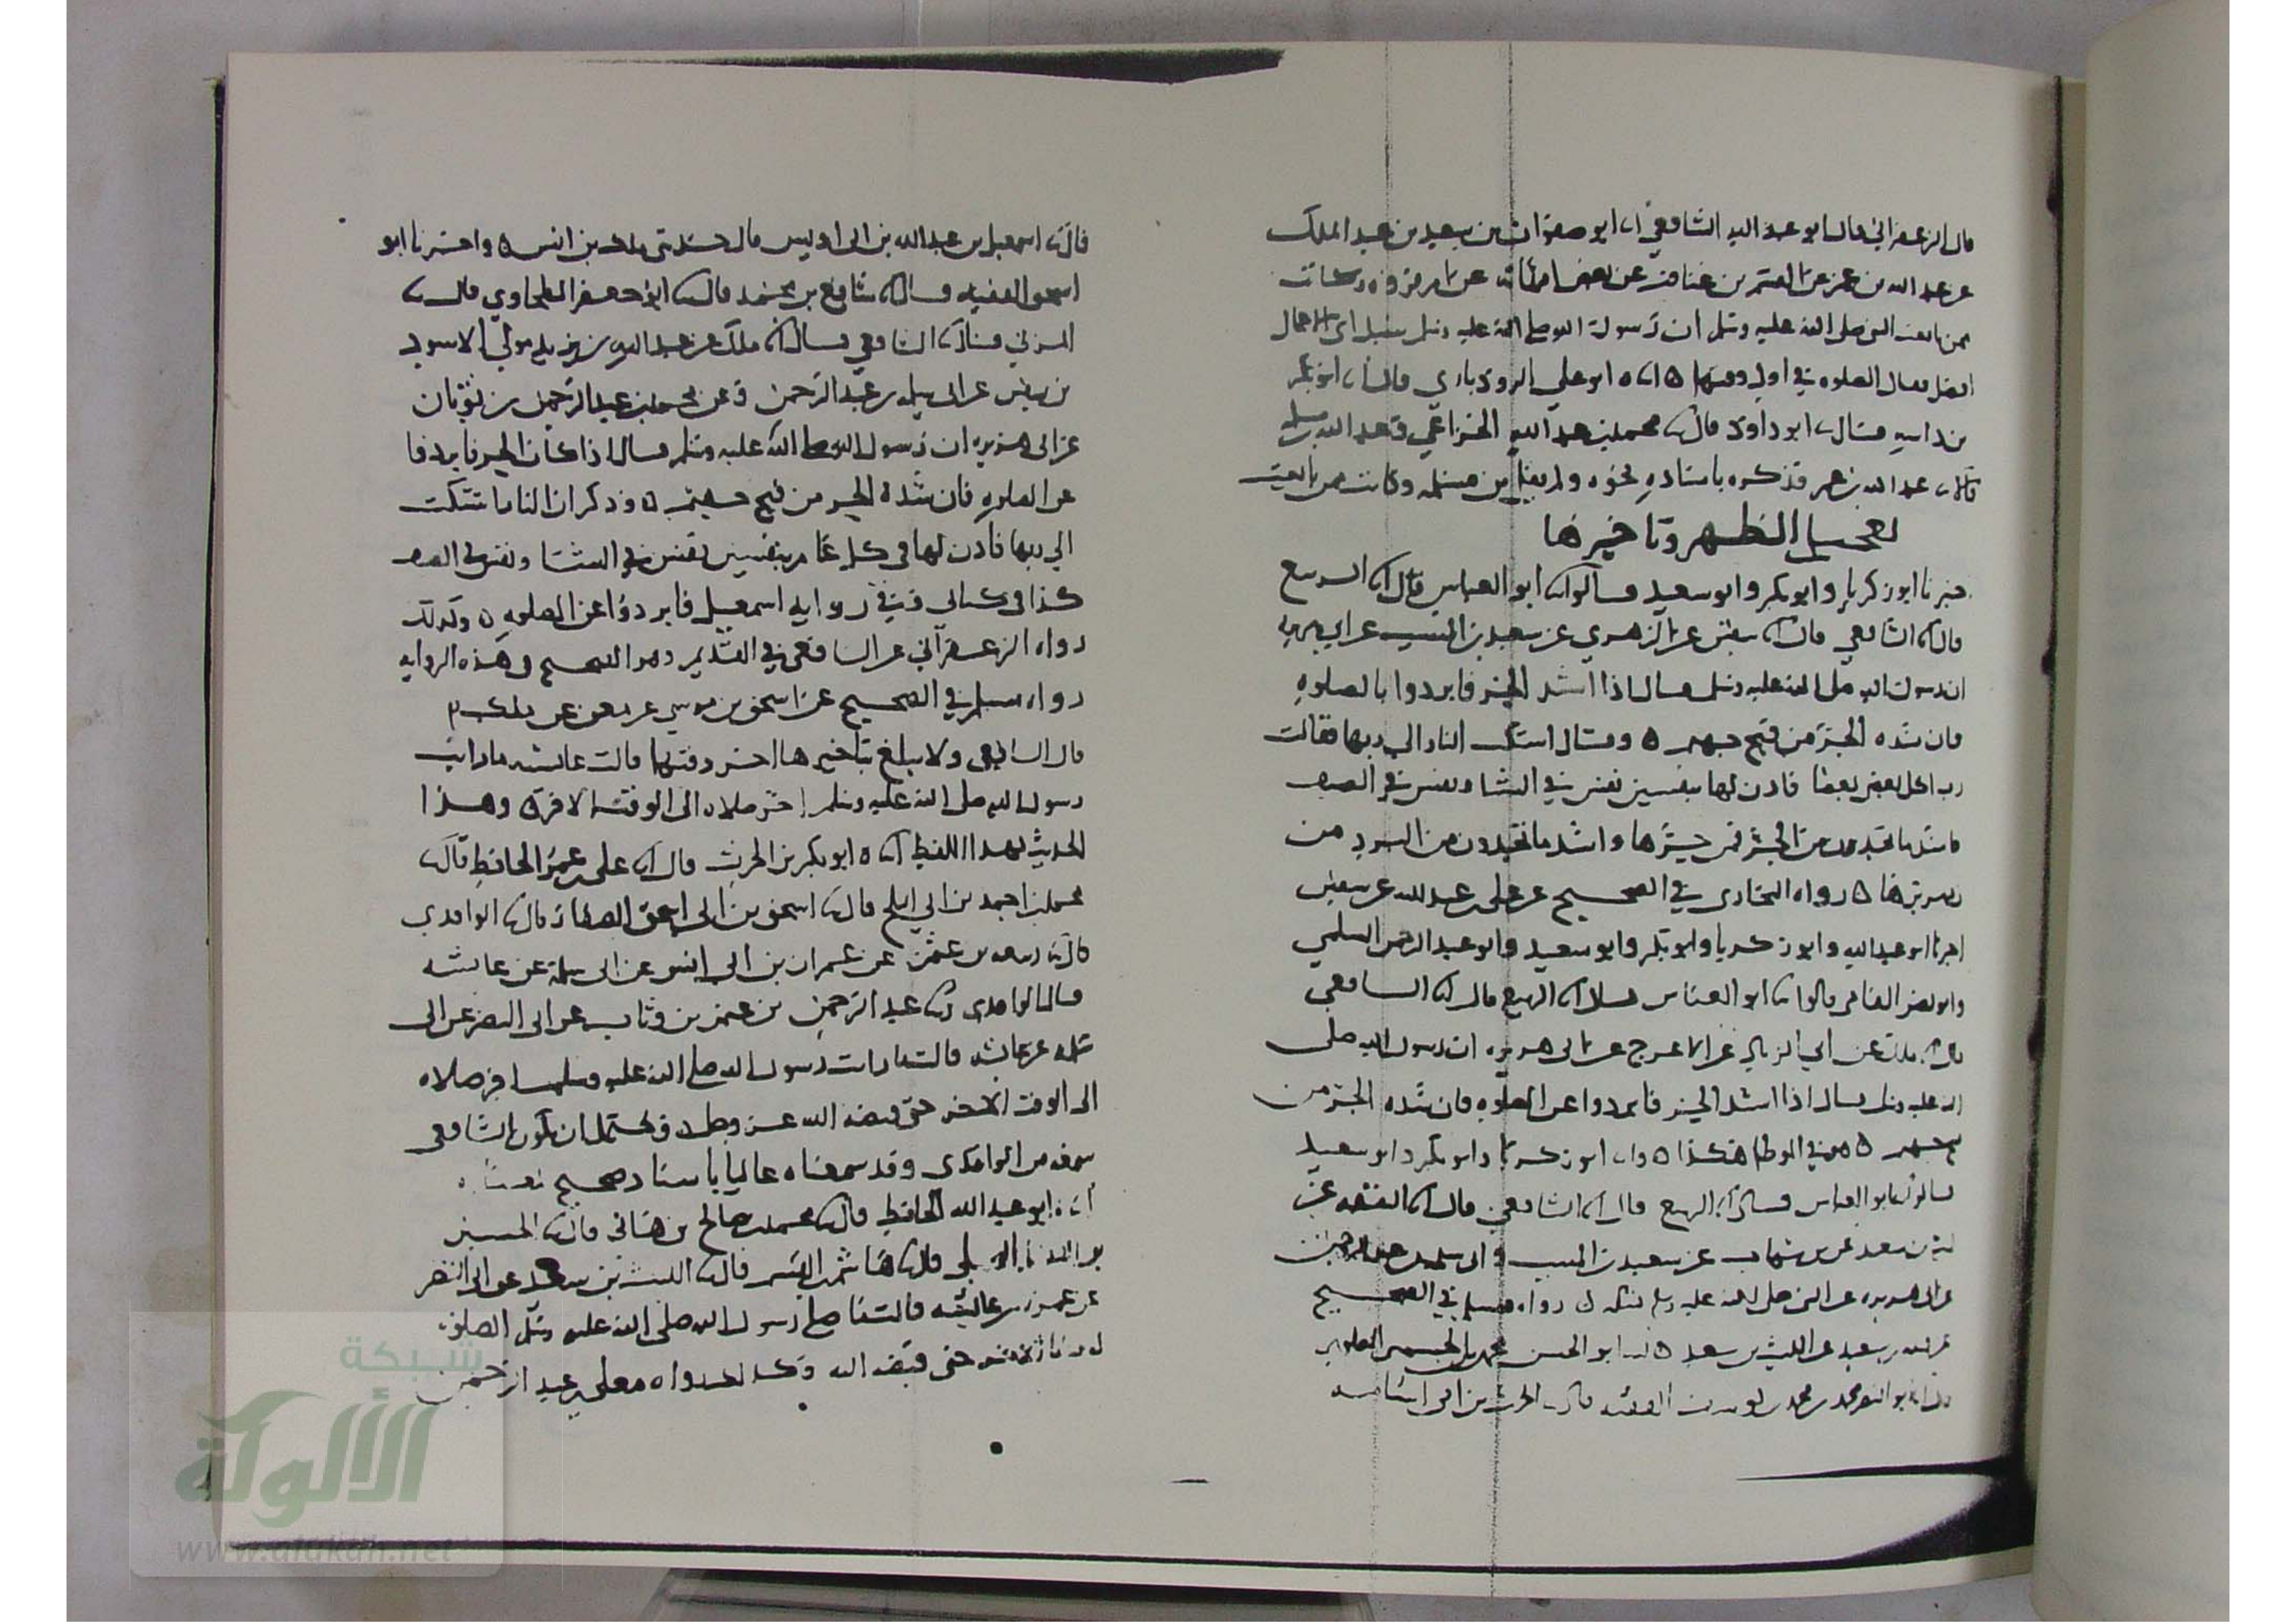 قال الزعفراني قال ابو عبد الله الشافعي ابو صفوان بن سعيد بن عبد الملك
عن عبد الله بن عمر عن القسم بن غنام عن بعض امهاته عن ام فروه وكانت
ممن بايعت النبي صلى الله عليه وسلم ان رسول الله صلى الله عليه وسلم سئل اي الاعمال
افضل فقال الصلوه في اول وقتها ه ابو علي الروذباري قال ابو بكر
بن داسه قال ابو داود قال محمد بن عبد الله الخزاعي وعبد الله بن مسلمه
قالا عبد الله بن عمر فذكره باسناده نحوه ولم يقل بن مسلمه وكانت ممن بايعت
تعجيل الظهر وتاخيرها
خبرنا ابو زكريا وابو بكر وابو سعيد قالوا ابو العباس قال الربيع
قال الشافعي قال سفين عن الزهري عن سعيد بن المسيب عن ابي هريره
ان رسول الله صلى الله عليه وسلم قال اذا اشتد الحر فابردوا بالصلوه
فان شده الحر من فيح جهنم ه وقال اشتكت النار الى ربها فقالت
رب اكل بعضي بعضا فاذن لها بنفسين نفس في الشتا ونفس في الصيف
فاشد ما تجدون من الحر فمن حرها واشد ما تجدون من البرد من
زمهريرها ه رواه البخاري في الصحيح عن علي بن عبد الله عن سفين
اخبرنا ابو عبد الله وابو زكريا وابو بكر وابو سعيد وابو عبد الرحمن السلمي
وابو نصر الفامي قالوا ابو العباس قال الربيع قال الشافعي
قال ملك عن ابي الزناد عن الاعرج عن ابي هريره ان رسول الله صلى
الله عليه وسلم قال اذا اشتد الحر فابردوا عن الصلوه فان شده الحر من
فيح جهنم ه هو في الموطا هكذا ه ابو زكريا وابو بكر وابو سعيد
قالوا ابو العباس قال الربيع قال الشافعي قال الثقه عن
ليث بن سعد عن بن شهاب عن سعيد بن المسيب وابي سلمه بن عبد الرحمن
عن ابي هريره عن النبي صلى الله عليه وسلم مثله رواه مسلم في الصحيح
عن قتيبه بن سعيد عن الليث بن سعد ه ابو الحسن محمد بن الحسين العلوي
ابو النصر محمد بن محمد بن يوسف الفقيه قال الحرث بن ابي اسامه
قال اسمعيل بن عبد الله بن ابي اويس قال حدثني ملك بن انس ه واخبرنا ابو
اسحق الفقيه قال شافع بن محمد قال ابو جعفر الطحاوي قال
المزني قال الشافعي قال ملك عن عبد الله بن يزيد مولى الاسود
بن سفين عن ابي سلمه بن عبد الرحمن وعن محمد بن عبد الرحمن بن ثوبان
عن ابي هريره ان رسول الله صلى الله عليه وسلم قال اذا كان الحر فابردوا
عن الصلوه فان شدة الحر من فيح جهنم ه وذكر ان النار اشتكت
الى ربها فاذن لها في كل عام بنفسين نفس في الشتا ونفس في الصيف
كذا في كتابي وفي روايه اسمعيل فابردوا عن الصلوه ه وكذلك
رواه الزعفراني عن الشافعي في القديم وهو الصحيح في هذه الروايه
رواه مسلم في الصحيح عن اسحق بن موسى عن معن عن ملك
قال الشافعي ولا يبلغ بتاخيرها اخر وقتها قالت عائشه ما رايت
رسول الله صلى الله عليه وسلم اخر صلاه الى الوقت الاخر ه وهذا
الحديث بهذا اللفظ ابو بكر بن الحرث قال علي بن عمر الحافظ قال
محمد بن احمد بن ابي الثلج قال اسحق بن ابي اسحق الصفار قال الواقدي
قال ربيعه بن عثمن عن عمران بن ابي انس عن ابي سلمة عن عائشه
قال الواقدي عبد الرحمن بن عثمن بن وثاب عن ابي النضر عن ابي
سلمه عن عائشه قالت ما رايت رسول الله صلى الله عليه وسلم اخر صلاه
الى الوقت الاخر حتى قبضه الله عز وجل ويحتمل ان يكون الشافعي
سمعه من الواقدي وقد سمعناه عاليا باسناد صحيح
ابو عبد الله الحافظ قال محمد بن صالح بن هاني قال الحسين
هاشم بن القسم قال الليث بن سعد عن ابي النضر
عن عمره عن عائشه قالت ما صلى رسول الله صلى الله عليه وسلم الصلوه
حتى قبضه الله وكذلك رواه معلى بن عبد الرحمن
شبكة
الألوكة
www.alukah.net